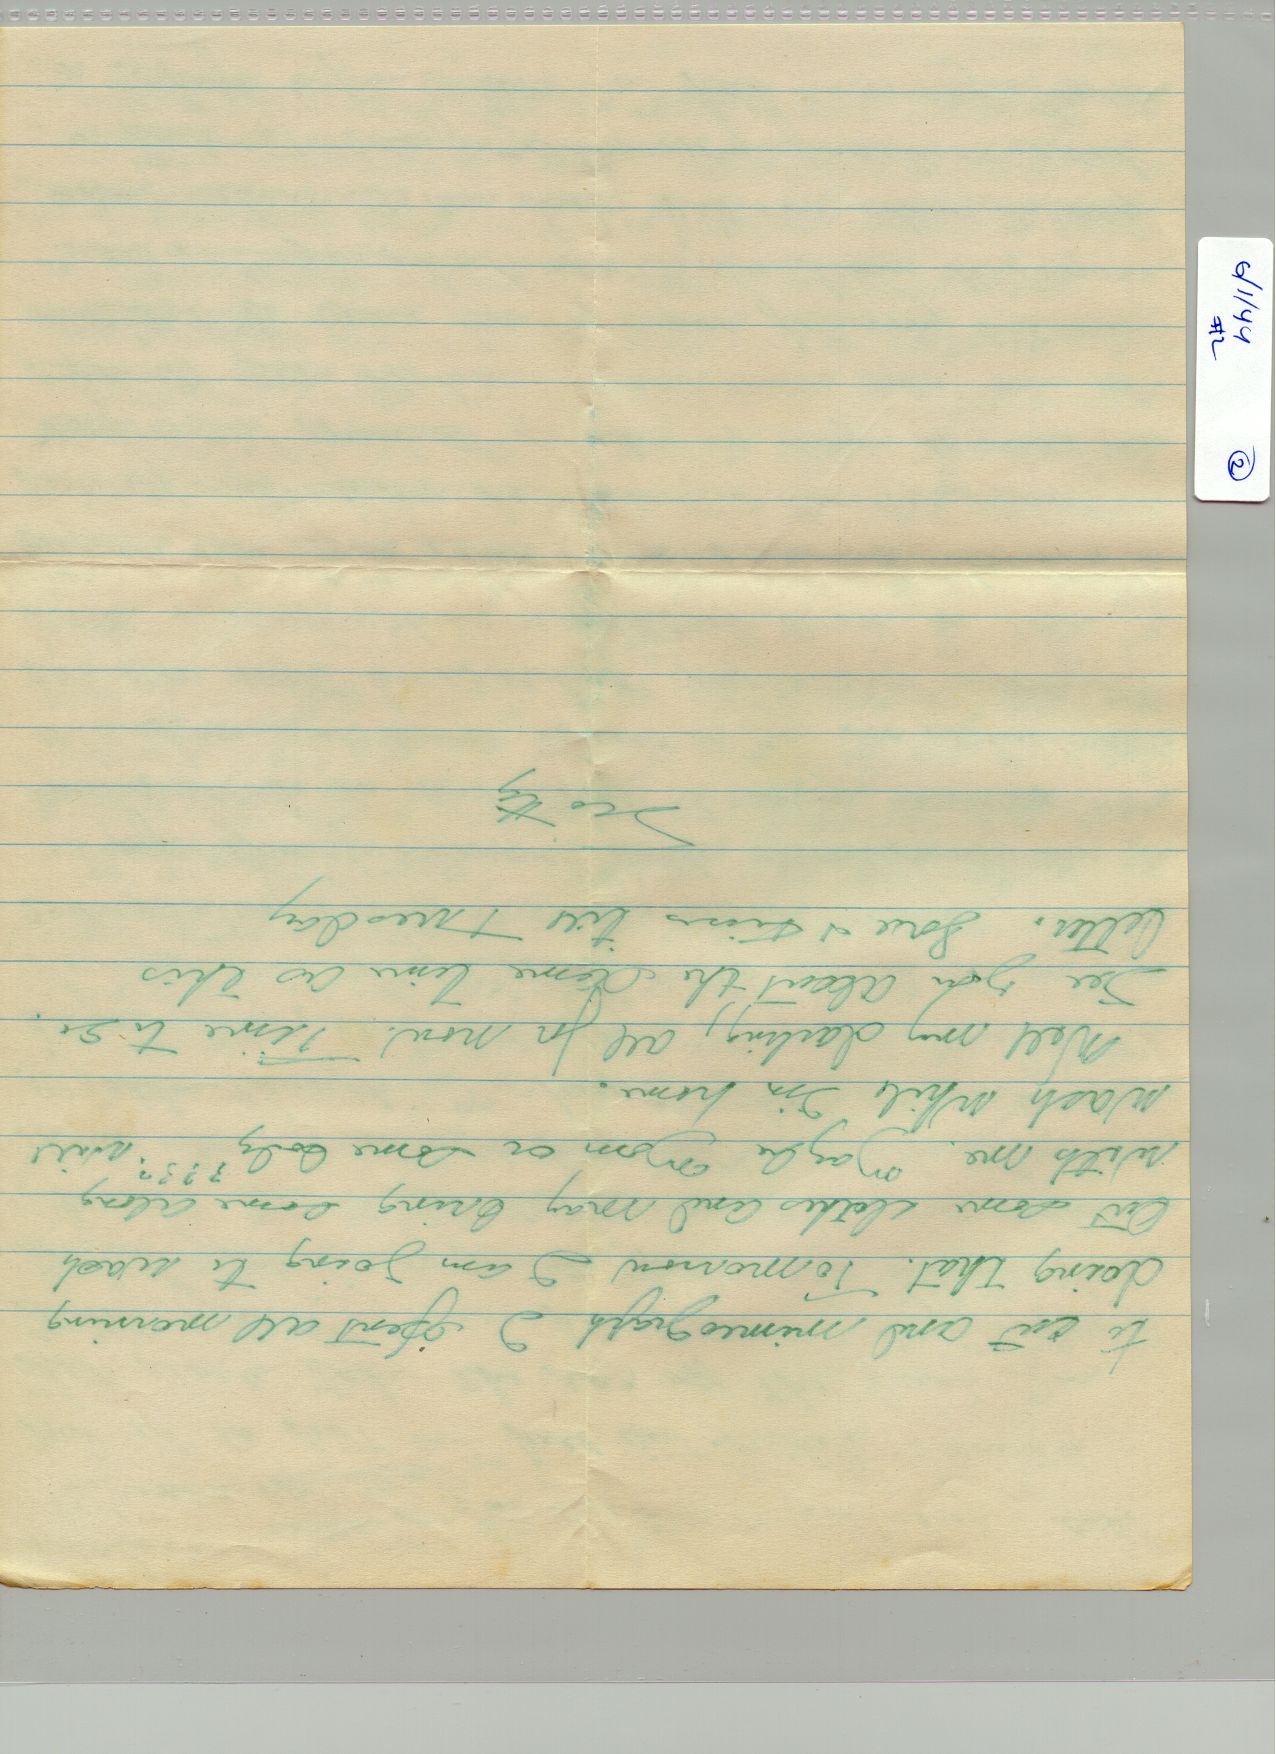 to cut and mimeograph I spent all morning
doing that. Tomorrow I am going to wash
out some clothes and may bring some along
with me. Maybe Mom or some body ???? will
wash while I'm home.
Well my darling, all for now. Time to go.
See you about the same time as this
letter. Love & Kisses till Tuesday
Scotty
6/1/44
#2
2